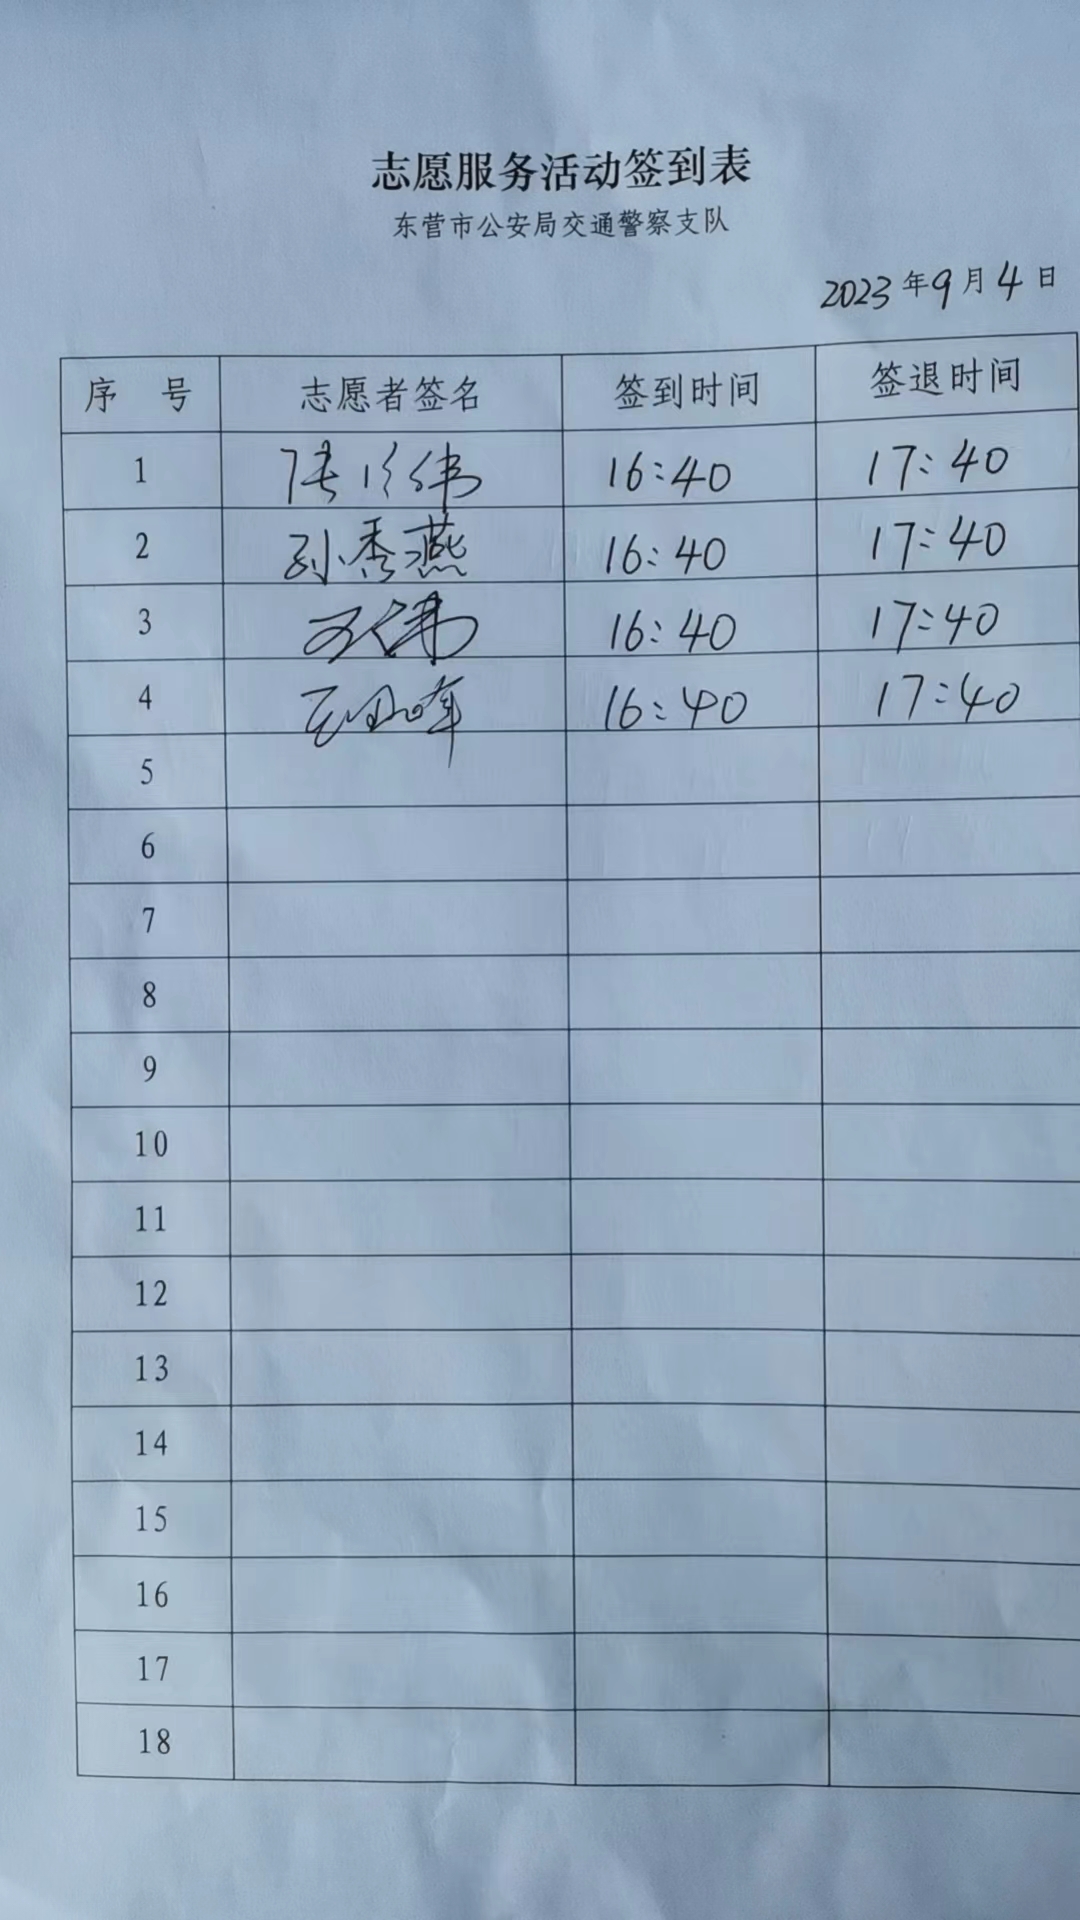 志愿服务活动签到表
东营市公安局交通警察支队
2023年9月4日
序 号 志愿者签名 签到时间 签退时间
1 16:40 17:40
2 孙秀燕 16:40 17:40
3 16:40 17:40
4 16:40 17:40
5
6
7
8
9
10
11
12
13
14
15
16
17
18